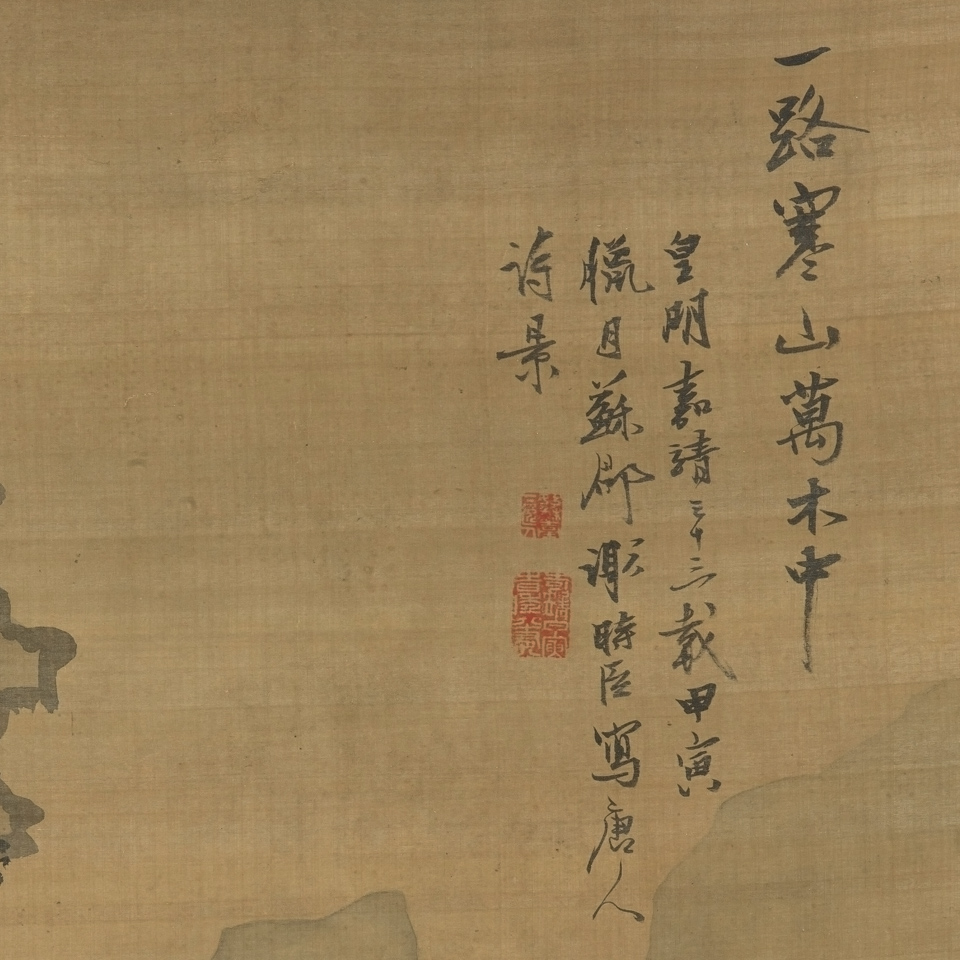 一路寒山萬木中
皇明嘉靖三十三載甲寅
臘月蘇郡謝時臣寫唐人
詩景